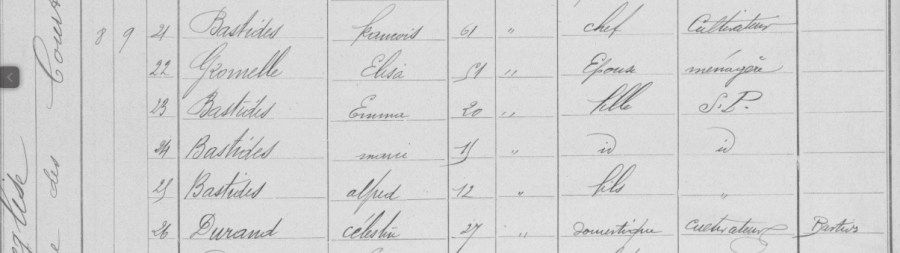 8 9 21 Bastides francois 61 " chef Cultivateur
22 Gromelle Elisa 51 " Epouse ménagère
23 Bastides Emma 20 " fille S.P.
24 Bastides marie 15 " id id
25 Bastides alfred 12 " fils "
26 Durand célestin 27 " domestique cultivateur
eglise
des Cour